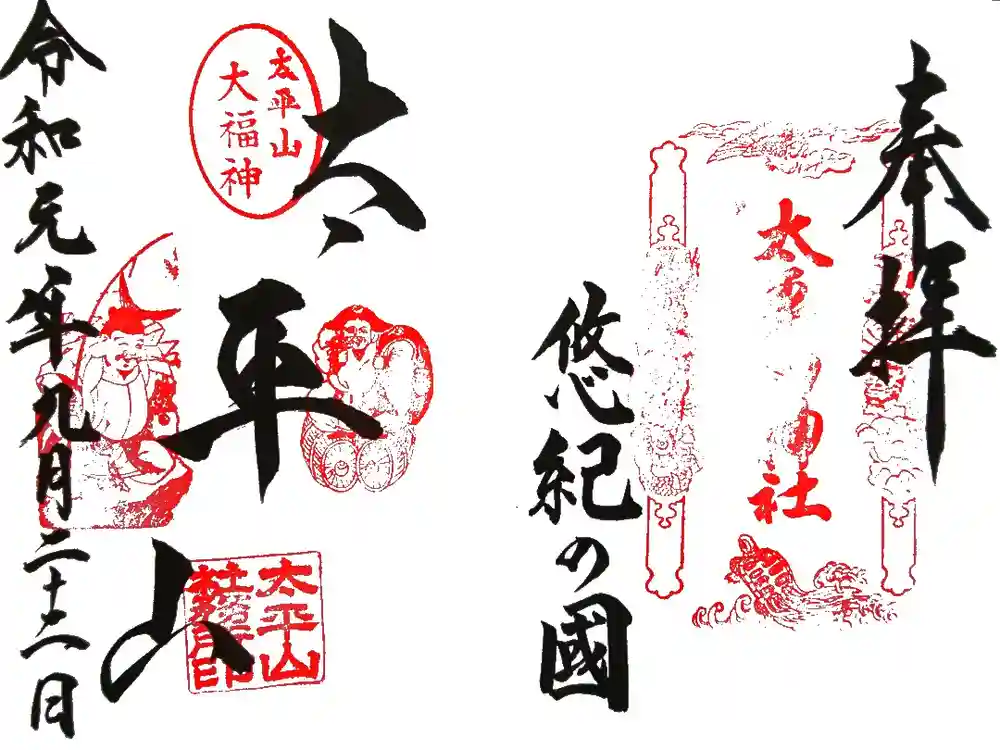 奉拝
太平山神社
悠紀の國
太平山
太平山
大福神
太平山
社務所印
令和元年九月二十二日